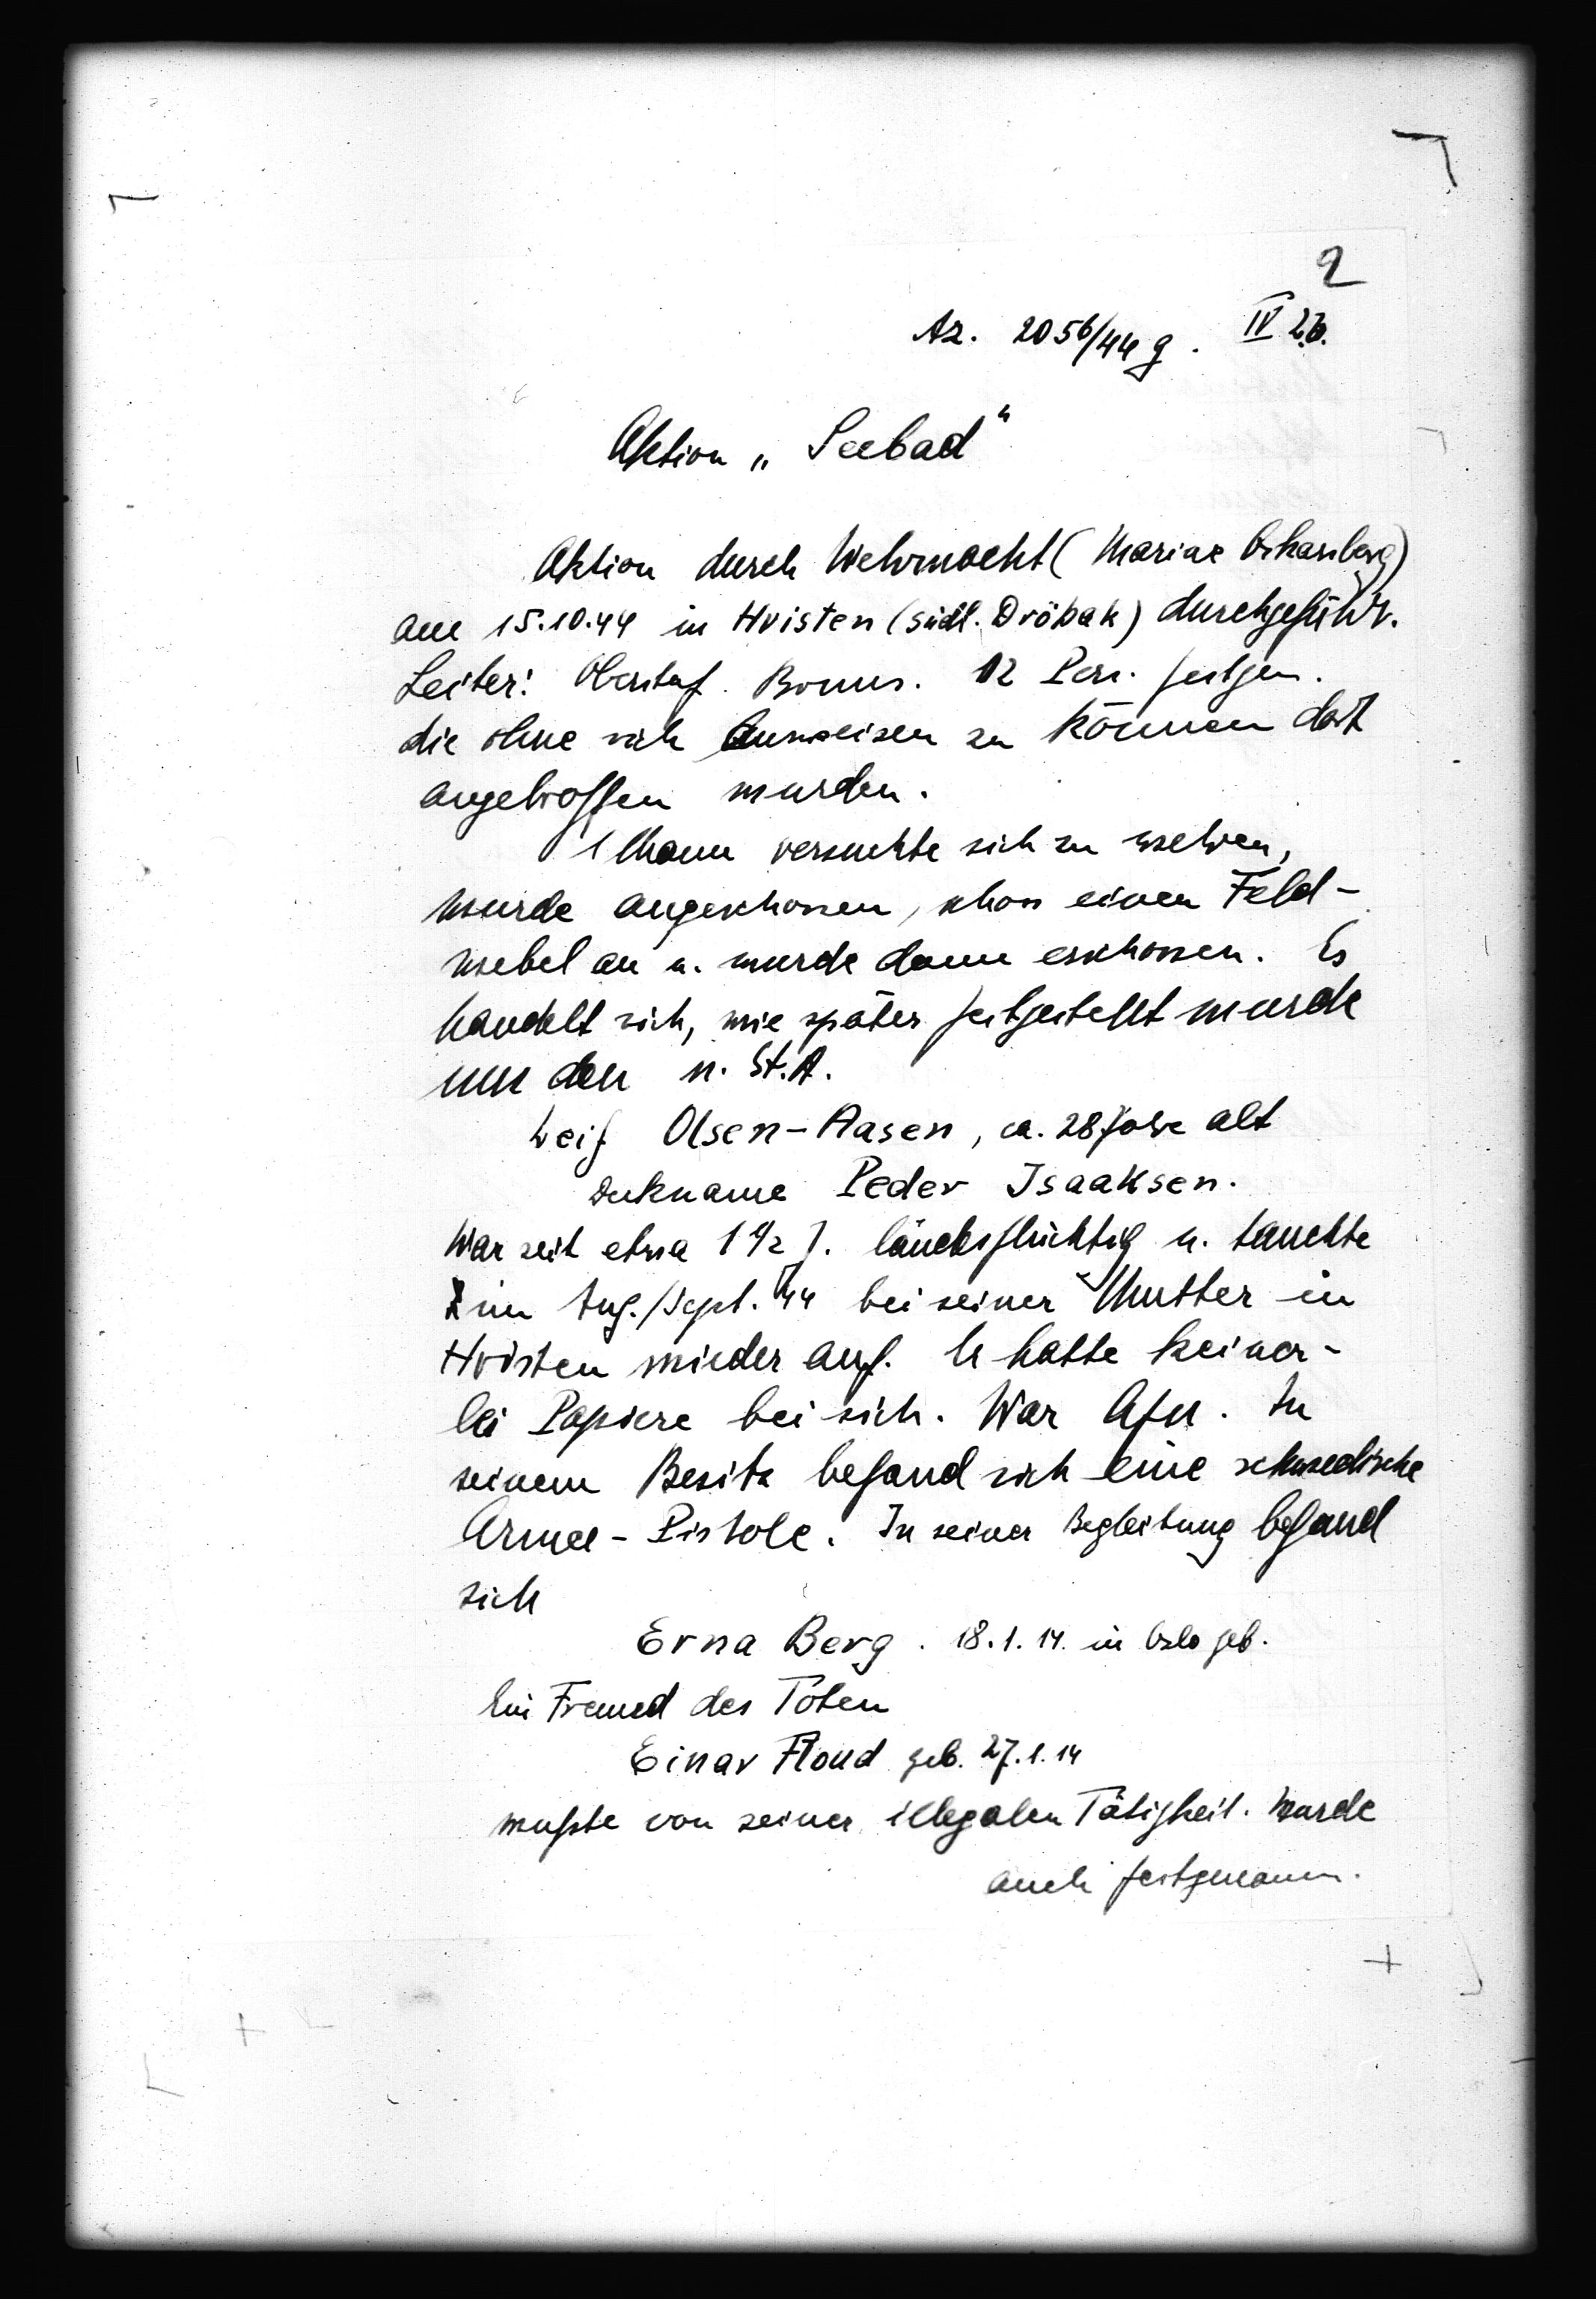 2
Az. 2056/44 g. IV 2b.
Aktion „Seebad“
Aktion durch Wehrmacht (Marine Oskarsborg)
am 15.10.44 in Hvisten (südl. Dröbak) durchgeführ.
Leiter: Oberstuf. Bomus. 12 Pers. festgen.
die ohne sich Ausweisen zu können dort
angetroffen wurden.
1 Mann versuchte sich zu wehren,
wurde angeschossen, schoss einen Feld-
webel an u. wurde dann erschossen. Es
handelt sich, wie später festgestellt wurde
um den n. St. A.
Leif Olsen-Aasen, ca. 28 Jahre alt
Deckname Peder Isaaksen.
War seit etwa 1 1/2 J. landesflüchtig u. tauchte
im Aug./Sept. 44 bei seiner Mutter in
Hvisten wieder auf. Er hatte keiner-
lei Papiere bei sich. War Afu. In
seinem Besitz befand sich eine schwedische
Armee-Pistole. In seiner Begleitung befand
sich
Erna Berg. 18.1.14. in Oslo geb.
Ein Freund des Toten
Einar Floud geb. 27.1.14
wußte von seiner illegalen Tätigkeit. Wurde
auch festgenomm.